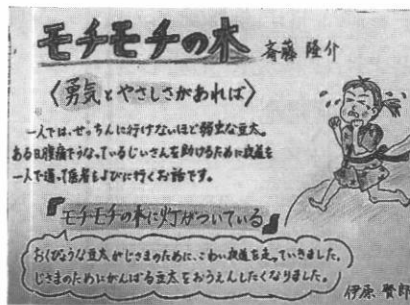 モチモチの木 斎藤 隆介
〈勇気とやさしさがあれば〉
一人では、せっちんに行けないほど弱虫な豆太。
ある日腹痛でうなっているじいさんを助けるために夜道を
一人で通って医者をよびに行くお話です。
『モチモチの木に灯がついている』
おくびょうな豆太がじさまのために、こわい夜道を走っていきました。
じさまのためにがんばる豆太をおうえんしたくなりました。
伊原 賢師